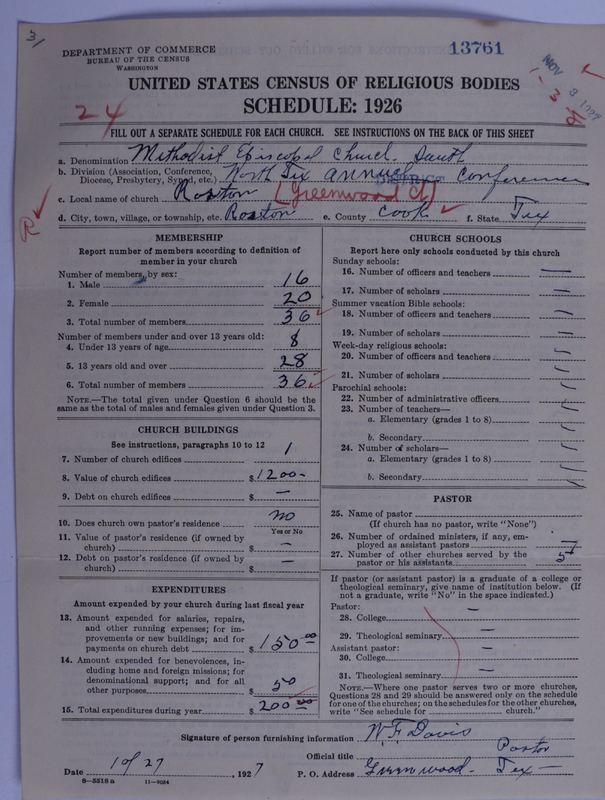 3/
DEPARTMENT OF COMMERCE
BUREAU OF THE CENSUS
WASHINGTON
13761
NOV 8 1927
UNITED STATES CENSUS OF RELIGIOUS BODIES
SCHEDULE: 1926
24
FILL OUT A SEPARATE SCHEDULE FOR EACH CHURCH. SEE INSTRUCTIONS ON THE BACK OF THIS SHEET
a. Denomination Methodist Episcopal Church. South
b. Division (Association, Conference, Diocese, Presbytery, Synod, etc.) North Tex annual Conference
DISTRICT
c. Local name of church Roston [Greenwood Ct]
d. City, town, village, or township, etc. Roston e. County Cook f. State Tex
R
MEMBERSHIP
Report number of members according to definition of
member in your church
Number of members by sex:
1. Male 16
2. Female 20
3. Total number of members 36
Number of members under and over 13 years old:
4. Under 13 years of age 8
5. 13 years old and over 28
6. Total number of members 36
NOTE.—The total given under Question 6 should be the
same as the total of males and females given under Question 3.
CHURCH BUILDINGS
See instructions, paragraphs 10 to 12
7. Number of church edifices 1
8. Value of church edifices $1200-
9. Debt on church edifices $ —
10. Does church own pastor's residence no
Yes or No
11. Value of pastor's residence (if owned by
church) $ —
12. Debt on pastor's residence (if owned by
church) $ —
EXPENDITURES
Amount expended by your church during last fiscal year
13. Amount expended for salaries, repairs,
and other running expenses; for im-
provements or new buildings; and for
payments on church debt $ 150.00
14. Amount expended for benevolences, in-
cluding home and foreign missions; for
denominational support; and for all
other purposes $ 50
15. Total expenditures during year $ 200.00
CHURCH SCHOOLS
Report here only schools conducted by this church
Sunday schools:
16. Number of officers and teachers —
17. Number of scholars —
Summer vacation Bible schools:
18. Number of officers and teachers —
19. Number of scholars —
Week-day religious schools:
20. Number of officers and teachers
21. Number of scholars
Parochial schools:
22. Number of administrative officers
23. Number of teachers—
a. Elementary (grades 1 to 8)
b. Secondary
24. Number of scholars—
a. Elementary (grades 1 to 8)
b. Secondary
PASTOR
25. Name of pastor
(If church has no pastor, write "None")
26. Number of ordained ministers, if any, em-
ployed as assistant pastors —
27. Number of other churches served by the
pastor or his assistants 5
If pastor (or assistant pastor) is a graduate of a college or
theological seminary, give name of institution below. (If
not a graduate, write "No" in the space indicated.)
Pastor:
28. College —
29. Theological seminary —
Assistant pastor:
30. College —
31. Theological seminary —
NOTE.—Where one pastor serves two or more churches,
Questions 28 and 29 should be answered only on the schedule
for one of the churches; on the schedules for the other churches,
write "See schedule for church."
Signature of person furnishing information W. F. Davis
Official title Pastor
Date 10/27, 1927 P. O. Address Greenwood. Tex —
8—5518 a 11—9024